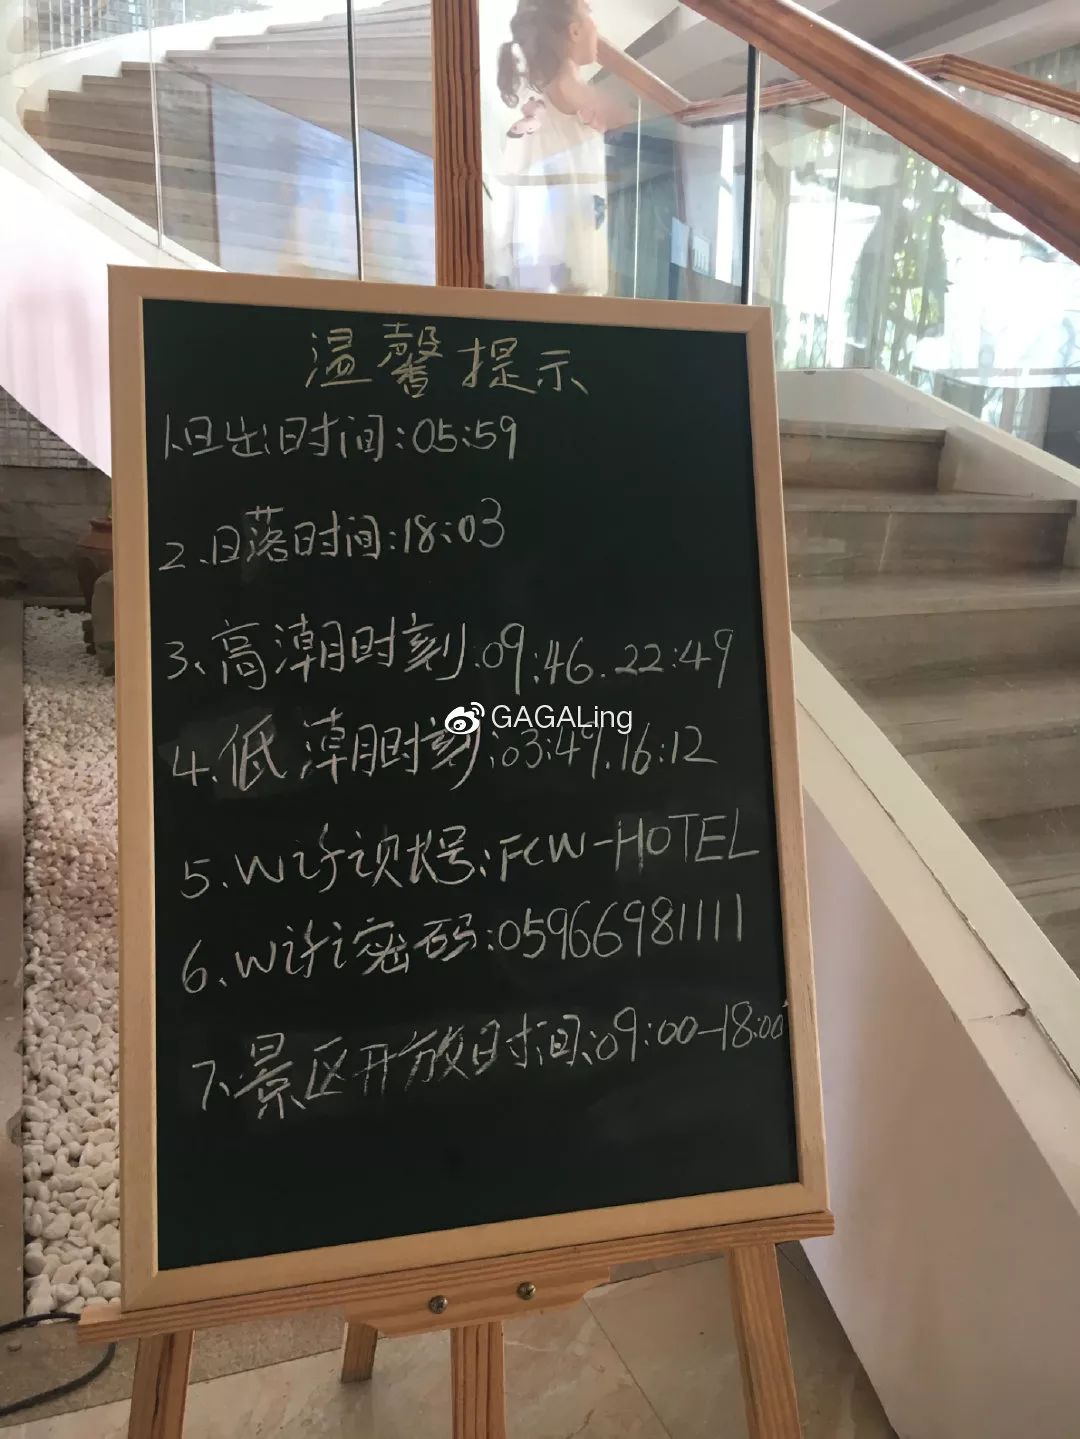 温馨提示
1.日出时间:05:59
2、日落时间:18:03
3、高潮时刻:09:46.22:49
4.低潮时刻:03:49.16:12
GAGALing
5.Wifi账号:FCW-HOTEL
6、Wifi密码:05966981111
7、景区开放时间:09:00-18:00